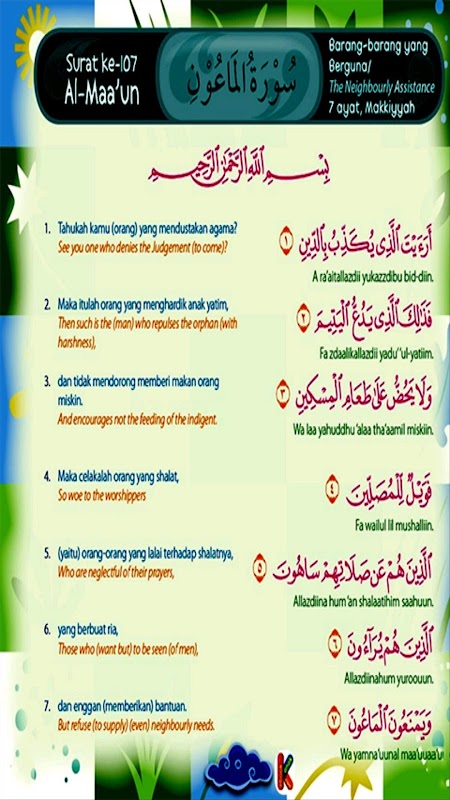 Surat ke-107
Al-Maa'un
سُوْرَةُ الْمَاعُوْنِ
Barang-barang yang
Berguna/
The Neighbourly Assistance
7 ayat, Makkiyyah
بِسْمِ اللَّهِ الرَّحْمَٰنِ الرَّحِيمِ
1. Tahukah kamu (orang) yang mendustakan agama?
See you one who denies the Judgement (to come)?
أَرَءَيْتَ الَّذِي يُكَذِّبُ بِالدِّينِ ١
A ra'aitallazdii yukazzdibu bid-diin.
2. Maka itulah orang yang menghardik anak yatim,
Then such is the (man) who repulses the orphan (with
harshness),
فَذَٰلِكَ الَّذِي يَدُعُّ الْيَتِيمَ ٢
Fa zdaalikallazdii yadu''ul-yatiim.
3. dan tidak mendorong memberi makan orang
miskin.
And encourages not the feeding of the indigent.
وَلَا يَحُضُّ عَلَىٰ طَعَامِ الْمِسْكِينِ ٣
Wa laa yahuddhu 'alaa tha'aamil miskiin.
4. Maka celakalah orang yang shalat,
So woe to the worshippers
فَوَيْلٌ لِّلْمُصَلِّينَ ٤
Fa wailul lil mushalliin.
5. (yaitu) orang-orang yang lalai terhadap shalatnya,
Who are neglectful of their prayers,
الَّذِينَ هُمْ عَن صَلَاتِهِمْ سَاهُونَ ٥
Allazdiina hum 'an shalaatihim saahuun.
6. yang berbuat ria,
Those who (want but) to be seen (of men),
الَّذِينَ هُمْ يُرَاءُونَ ٦
Allazdiinahum yurouun.
7. dan enggan (memberikan) bantuan.
But refuse (to supply) (even) neighbourly needs.
وَيَمْنَعُونَ الْمَاعُونَ ٧
Wa yamna'uunal maa'uu
K